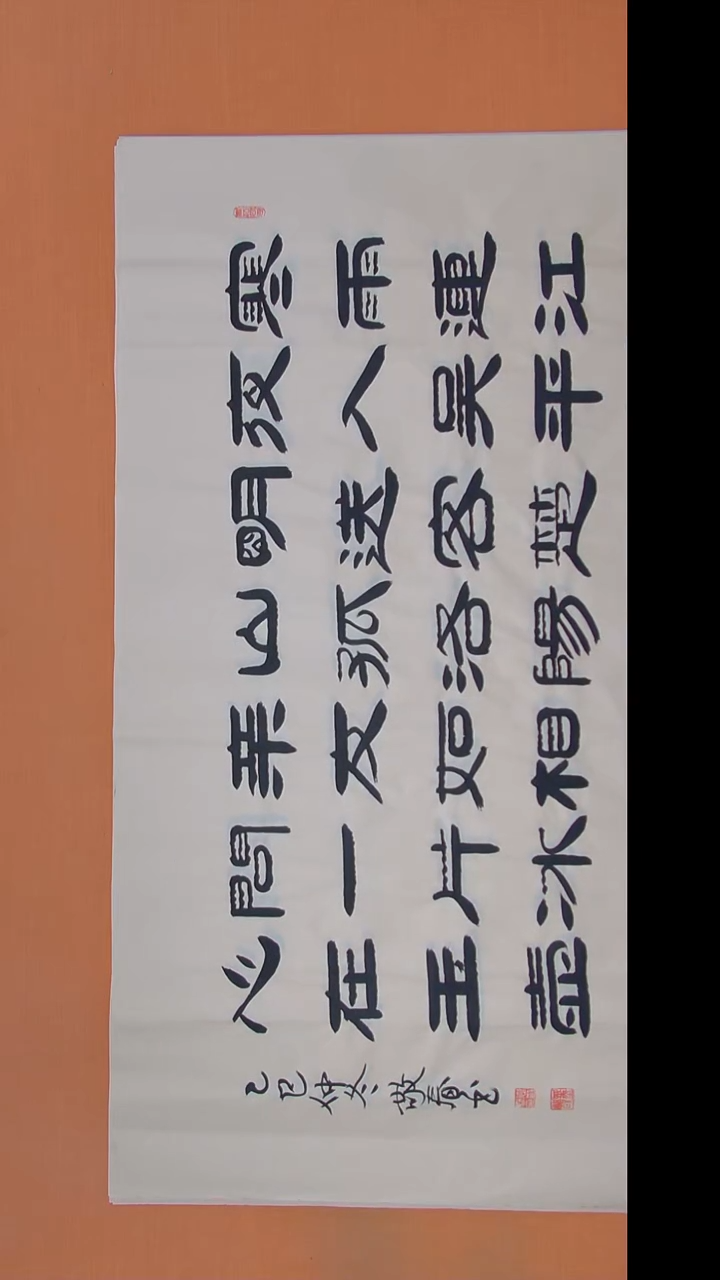 寒雨連江
夜入吳平
明送客楚
山孤洛陽
亲友如相
問一片冰
心在玉壺
乙巳仲冬 书